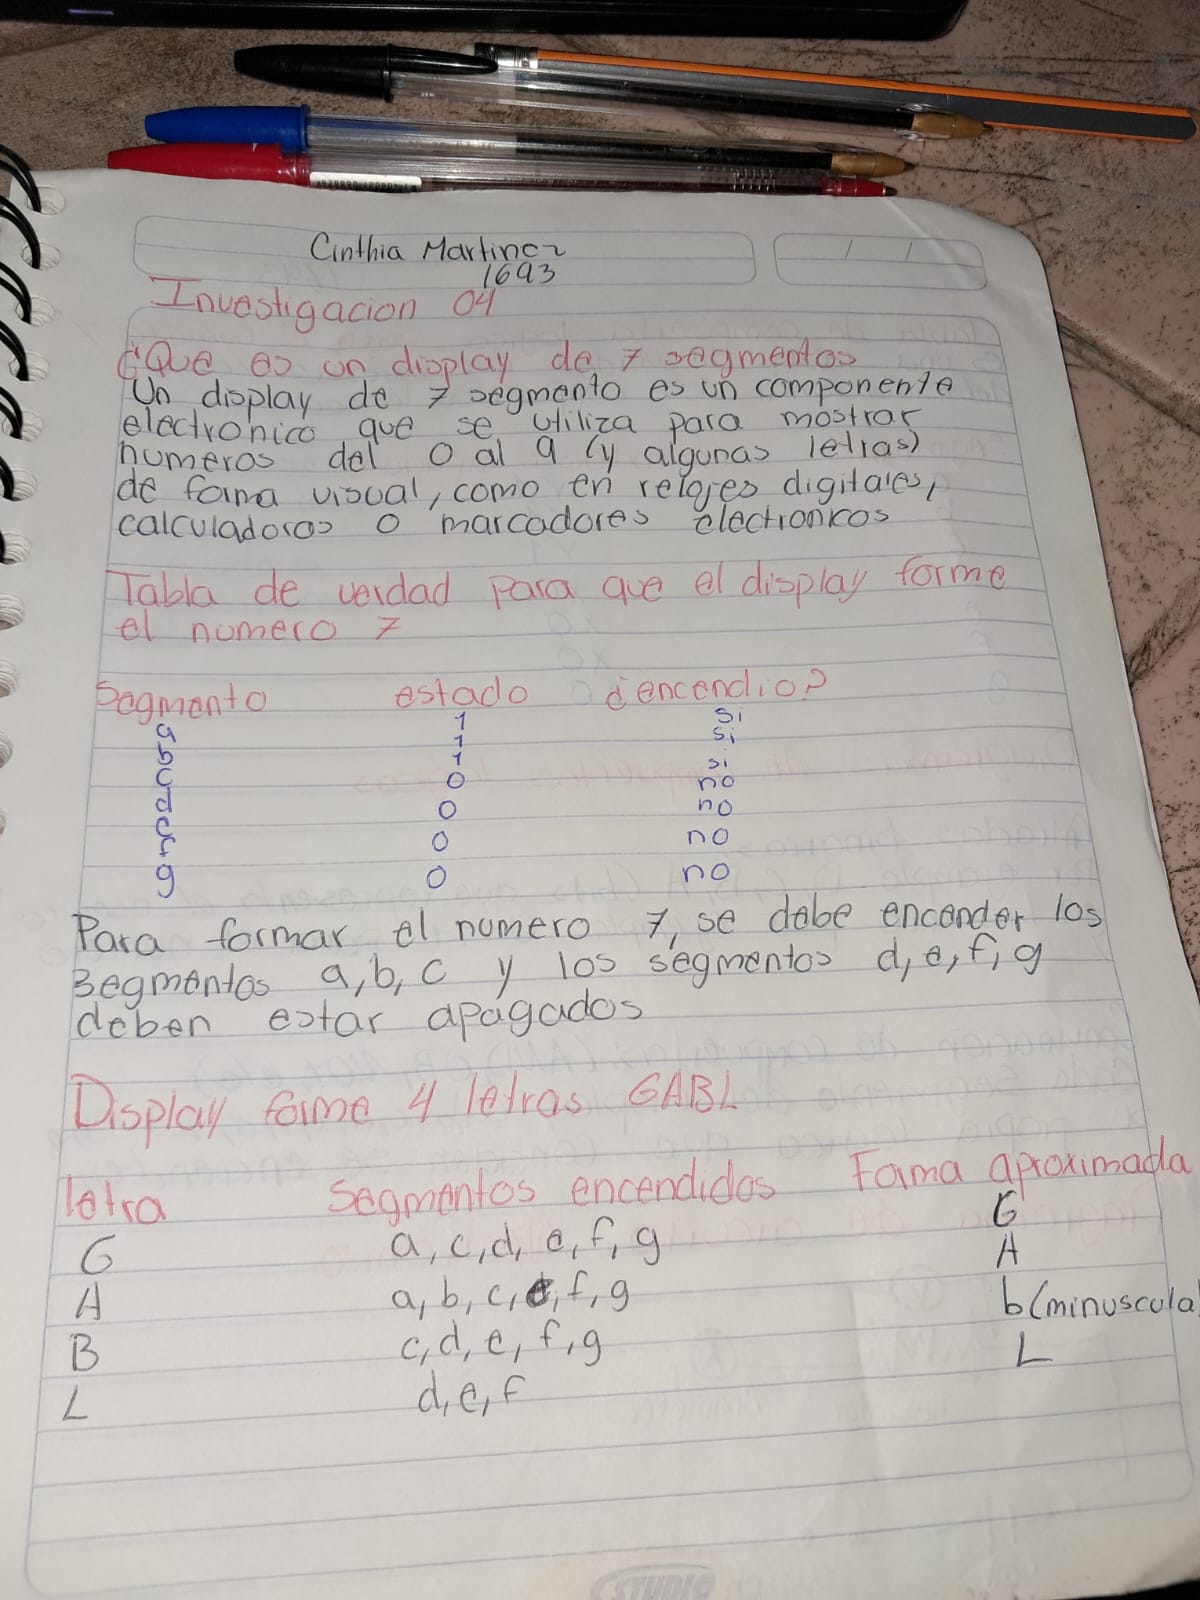 Cinthia Martinez
1693
Investigacion 04
¿Que es un display de 7 segmentos
Un display de 7 segmento es un componente
electronico que se utiliza para mostrar
numeros del 0 al 9 (y algunas letras)
de forma visual, como en relojes digitales,
calculadoras o marcadores electronicos
Tabla de verdad para que el display forme
el numero 7
Segmento estado ¿encendio?
a 1 si
b 1 si
c 1 si
d 0 no
e 0 no
f 0 no
g 0 no
Para formar el numero 7, se debe encender los
segmentos a, b, c y los segmentos d, e, f, g
deben estar apagados
Display forme 4 letras GABL
letra Segmentos encendidos Forma aproximada
G a, c, d, e, f, g G
A a, b, c, e, f, g A
B c, d, e, f, g b (minuscula)
L d, e, f L
STUDIO